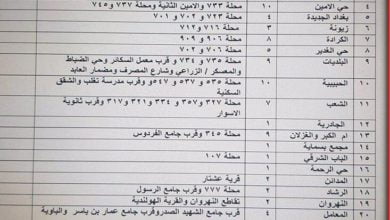 ٤ حي الامين ١٠ محلة ٧٣٣ والامين الثانية ومحلة ٧٣٧ و٧٤٥
٥ بغداد الجديدة ٤ محلة ٧٠٣ و ٧٠٢ و ٧٠١
٦ زيونة ٣ محلة ٧١٢ و ٧١٤
٧ الكرادة ٨ محلة ٩٠٦ و ٩٠٩
٨ حي الغدير ٥ محلة ٧٠٦ و ٧٠٢
٩ البلديات ٩ محلة ٧٣٥ و ٧٣٤ و قرب معمل السكائر وحي الضباط
والمعسكر / الزراعي وشارع المصرف ومضمار العابد
١٠ الحبيبية ١٠ محلة ٥٣٥ و ٥٣٧ و ٥٤٧ و وقرب مدرسة تغلب والشقق
السكنية
١١ الشعب ٧ محلة ٣٢٧ و٣٥٧ و ٣٣٤ و ٣٢١ و٣١٧ وقرب ثانوية
الاسوار
١٢ الجادرية ١
١٣ ام الكبر والغزلان ٩ محلة ٣٤٥ وقرب جامع الفردوس
١٤ مجمع بسماية ١
١٥ الباب الشرقي ١ محلة ١٠٧
١٦ حي الرحمة ١
١٧ المدائن ١ قرية عشتار
١٨ الرشاد ٢ محلة ٧٧٧ وقرب جامع الرسول
١٩ النهروان ٢ تقاطع النهروان والقرية الهولندية
٢٠ المعامل ٤ قرب جامع الشهيد الصدر وقرب جامع عمار بن ياسر والباوية